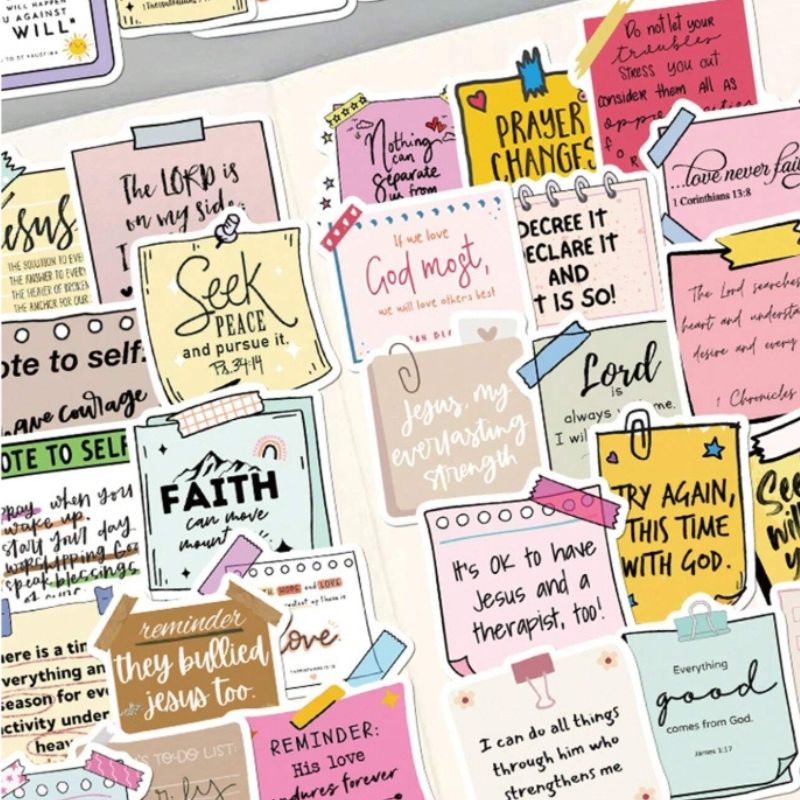 WILL HAPPEN
U AGAINST
WILL."
Do not let your
troubles
stress you out.
consider them all AS
opportunities
FOR
Nothing
can
separate
us from
PRAYER
CHANGES
...love never fails
1 Corinthians 13:8
The LORD is
on my side.
Jesus
THE SOLUTION TO EVERY
THE ANSWER TO EVERY
THE HEALER OF BROKEN
THE ANCHOR FOR OUR
Seek
PEACE
and pursue it.
Ps. 34:14
If we love
God most,
we will love others best
DECREE IT
DECLARE IT
AND
IT IS SO!
The Lord searches
heart and understands
desire and every
1 Chronicles
note to self:
have courage
Jesus, my
everlasting
strength
Lord
is
always me.
I wil
NOTE TO SELF
pray when you
wake up.
start your day
worshipping God
speak blessings
FAITH
can move
mount
TRY AGAIN,
THIS TIME
WITH GOD.
See
will
y
It's OK to have
Jesus and a
therapist, too!
HOPE and LOVE
love.
reminder
they bullied
jesus too.
here is a tim
verything an
season for eve
activity under
heav
Everything
good
comes from God.
James 1:17
I can do all things
through him who
strengthens me
'S TO-DO LIST:
REMINDER:
His love
endures forever